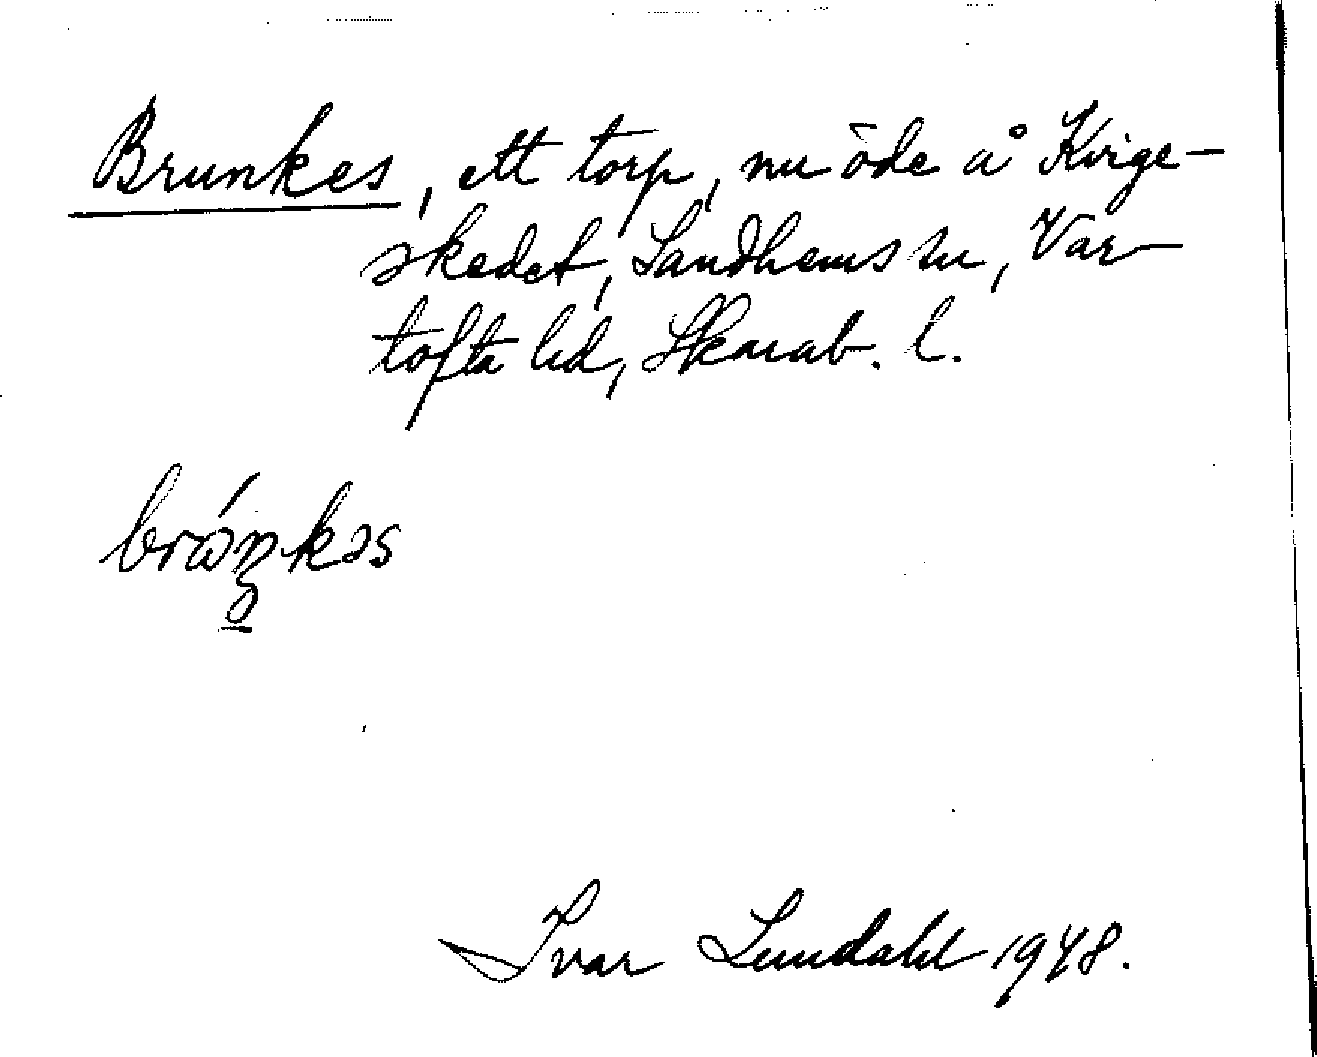 Brunkes, ett torp, nu öde å Kvige-
skedet, Sandhems sn, Var-
tofta hd, Skarab. l.
brá̱ŋkəs
Ivar Lundahl 1948.